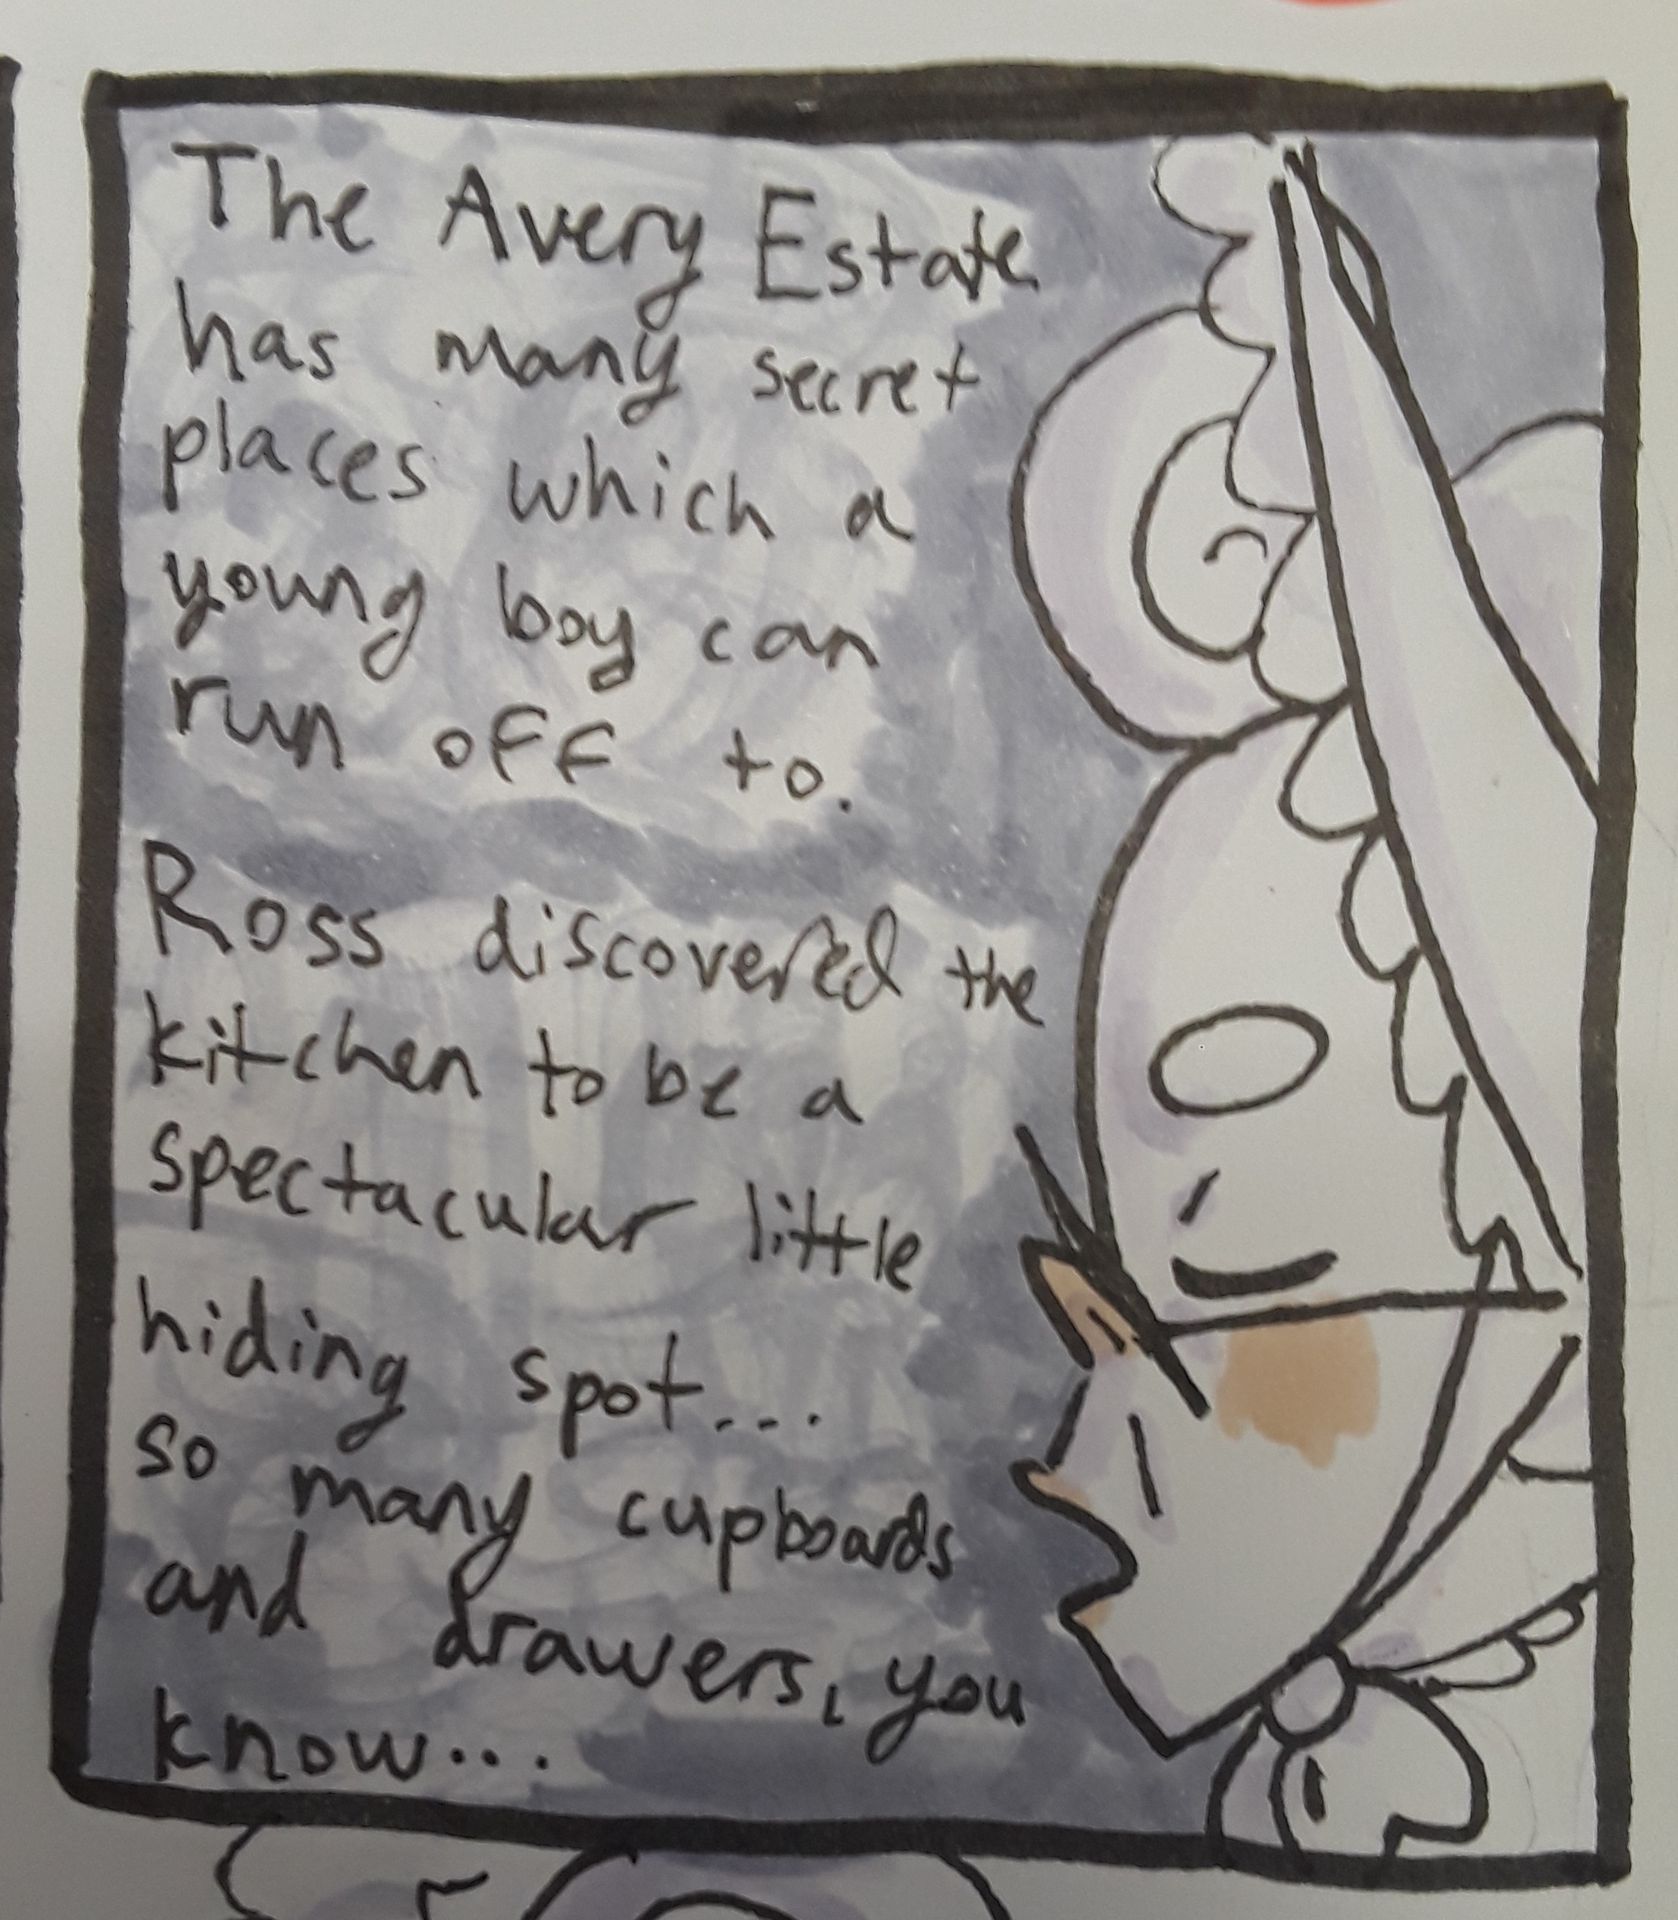 The Avery Estate
has many secret
places which a
young boy can
run off to.
Ross discovered the
kitchen to be a
spectacular little
hiding spot...
so many cupboards
and drawers, you
know...